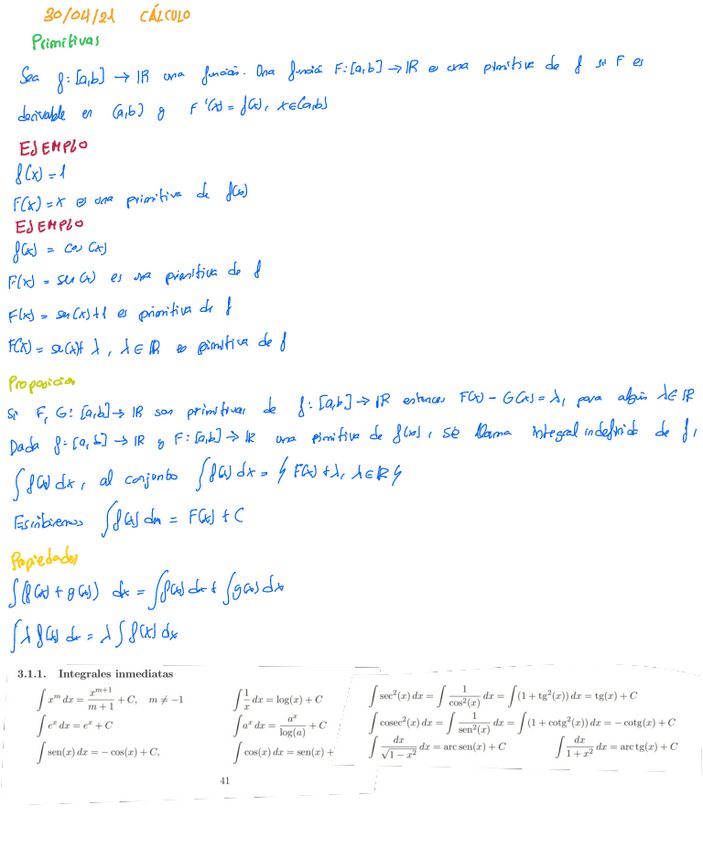 30/04/21 CÁLCULO
Primitivas
Sea f: [a,b] → IR una función. Una función F: [a,b] → IR es una primitiva de f si F es
derivable en (a,b) y F'(x) = f(x), x∈(a,b)
EJEMPLO
f(x) = 1
F(x) = x es una primitiva de f(x)
EJEMPLO
f(x) = cos(x)
F(x) = sen(x) es una primitiva de f
F(x) = sen(x)+1 es primitiva de f
F(x) = sen(x)+ λ, λ∈IR es primitiva de f
Proposición
Si F, G: [a,b] → IR son primitivas de f: [a,b] → IR entonces F(x) - G(x) = λ, para algún λ∈IR
Dada f: [a,b] → IR y F: [a,b] → IR una primitiva de f(x), se llama integral indefinida de f,
∫f(x) dx, al conjunto ∫f(x) dx = { F(x) + λ, λ∈IR }
Escribiremos ∫f(x) dx = F(x) + C
Propiedades
∫(f(x) + g(x)) dx = ∫f(x) dx + ∫g(x) dx
∫λ f(x) dx = λ ∫f(x) dx
3.1.1. Integrales inmediatas
∫ x^m dx = x^(m+1)/(m+1) + C, m ≠ −1 ∫ 1/x dx = log(x) + C ∫ sec²(x) dx = ∫ 1/cos²(x) dx = ∫(1 + tg²(x)) dx = tg(x) + C
∫ e^x dx = e^x + C ∫ a^x dx = a^x/log(a) + C ∫ cosec²(x) dx = ∫ 1/sen²(x) dx = ∫(1 + cotg²(x)) dx = − cotg(x) + C
∫ sen(x) dx = − cos(x) + C, ∫ cos(x) dx = sen(x) + ∫ dx/√(1 − x²) dx = arc sen(x) + C ∫ dx/(1 + x²) dx = arc tg(x) + C
41